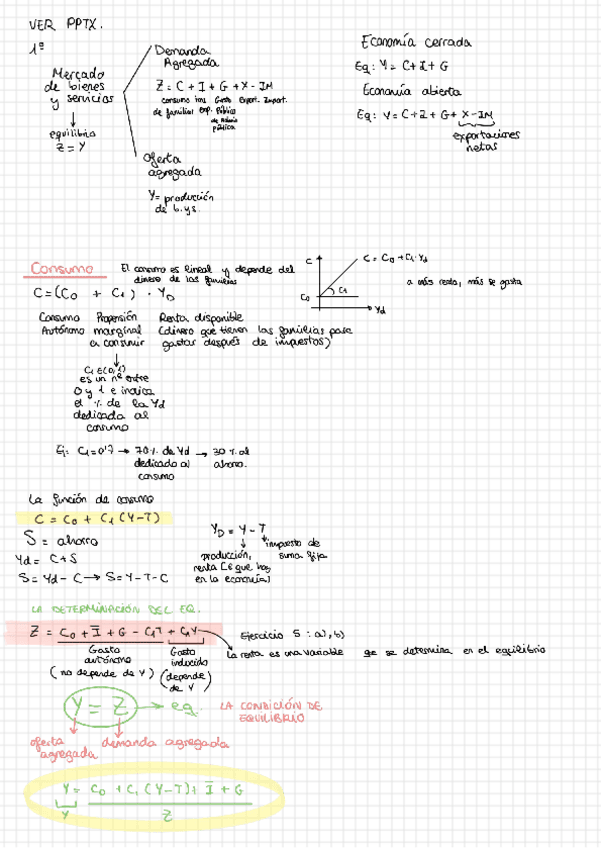 VER PPTX.
1º
Mercado
de bienes
y servicios
equilibrio
Z = Y
Demanda
Agregada
Z = C + I + G + X - IM
consumo inv. Gasto Export. Import.
de familias emp. Público
pública
Oferta
agregada
Y = producción
de b. y s.
Economía cerrada
Eq: Y = C + I + G
Economía abierta
Eq: Y = C + I + G + X - IM
exportaciones
netas
Consumo
El consumo es lineal y depende del
dinero de las familias
C = (C0 + C1) · YD
Consumo Propensión Renta disponible
Autónomo marginal (dinero que tienen las familias para
a consumir gastar después de impuestos)
C1 E(0,1)
es un nº entre
0 y 1 e indica
el % de la Yd
dedicada al
consumo
C
C = C0 + C1 · Yd
C1
C0
Yd
a más renta, más se gasta
Ej: C1 = 0'7 → 70% de Yd → 30% al
dedicado al ahorro.
consumo
La función de consumo
C = C0 + C1 (Y-T)
S = ahorro
Yd = C + S
S = Yd - C → S = Y - T - C
YD = Y - T
impuesto de
suma fija
producción,
renta (€ que hay
en la economía)
LA DETERMINACIÓN DEL EQ.
Z = C0 + I̅ + G - C1T + C1Y
Gasto
autónomo
(no depende de Y)
Gasto
inducido
(depende
de Y)
Ejercicio 5: a), b)
La renta es una variable que se determina en el equilibrio
Y = Z → eq.
LA CONDICIÓN DE
EQUILIBRIO
oferta
agregada
demanda agregada
Y = C0 + C1 (Y-T) + I̅ + G
Y
Z